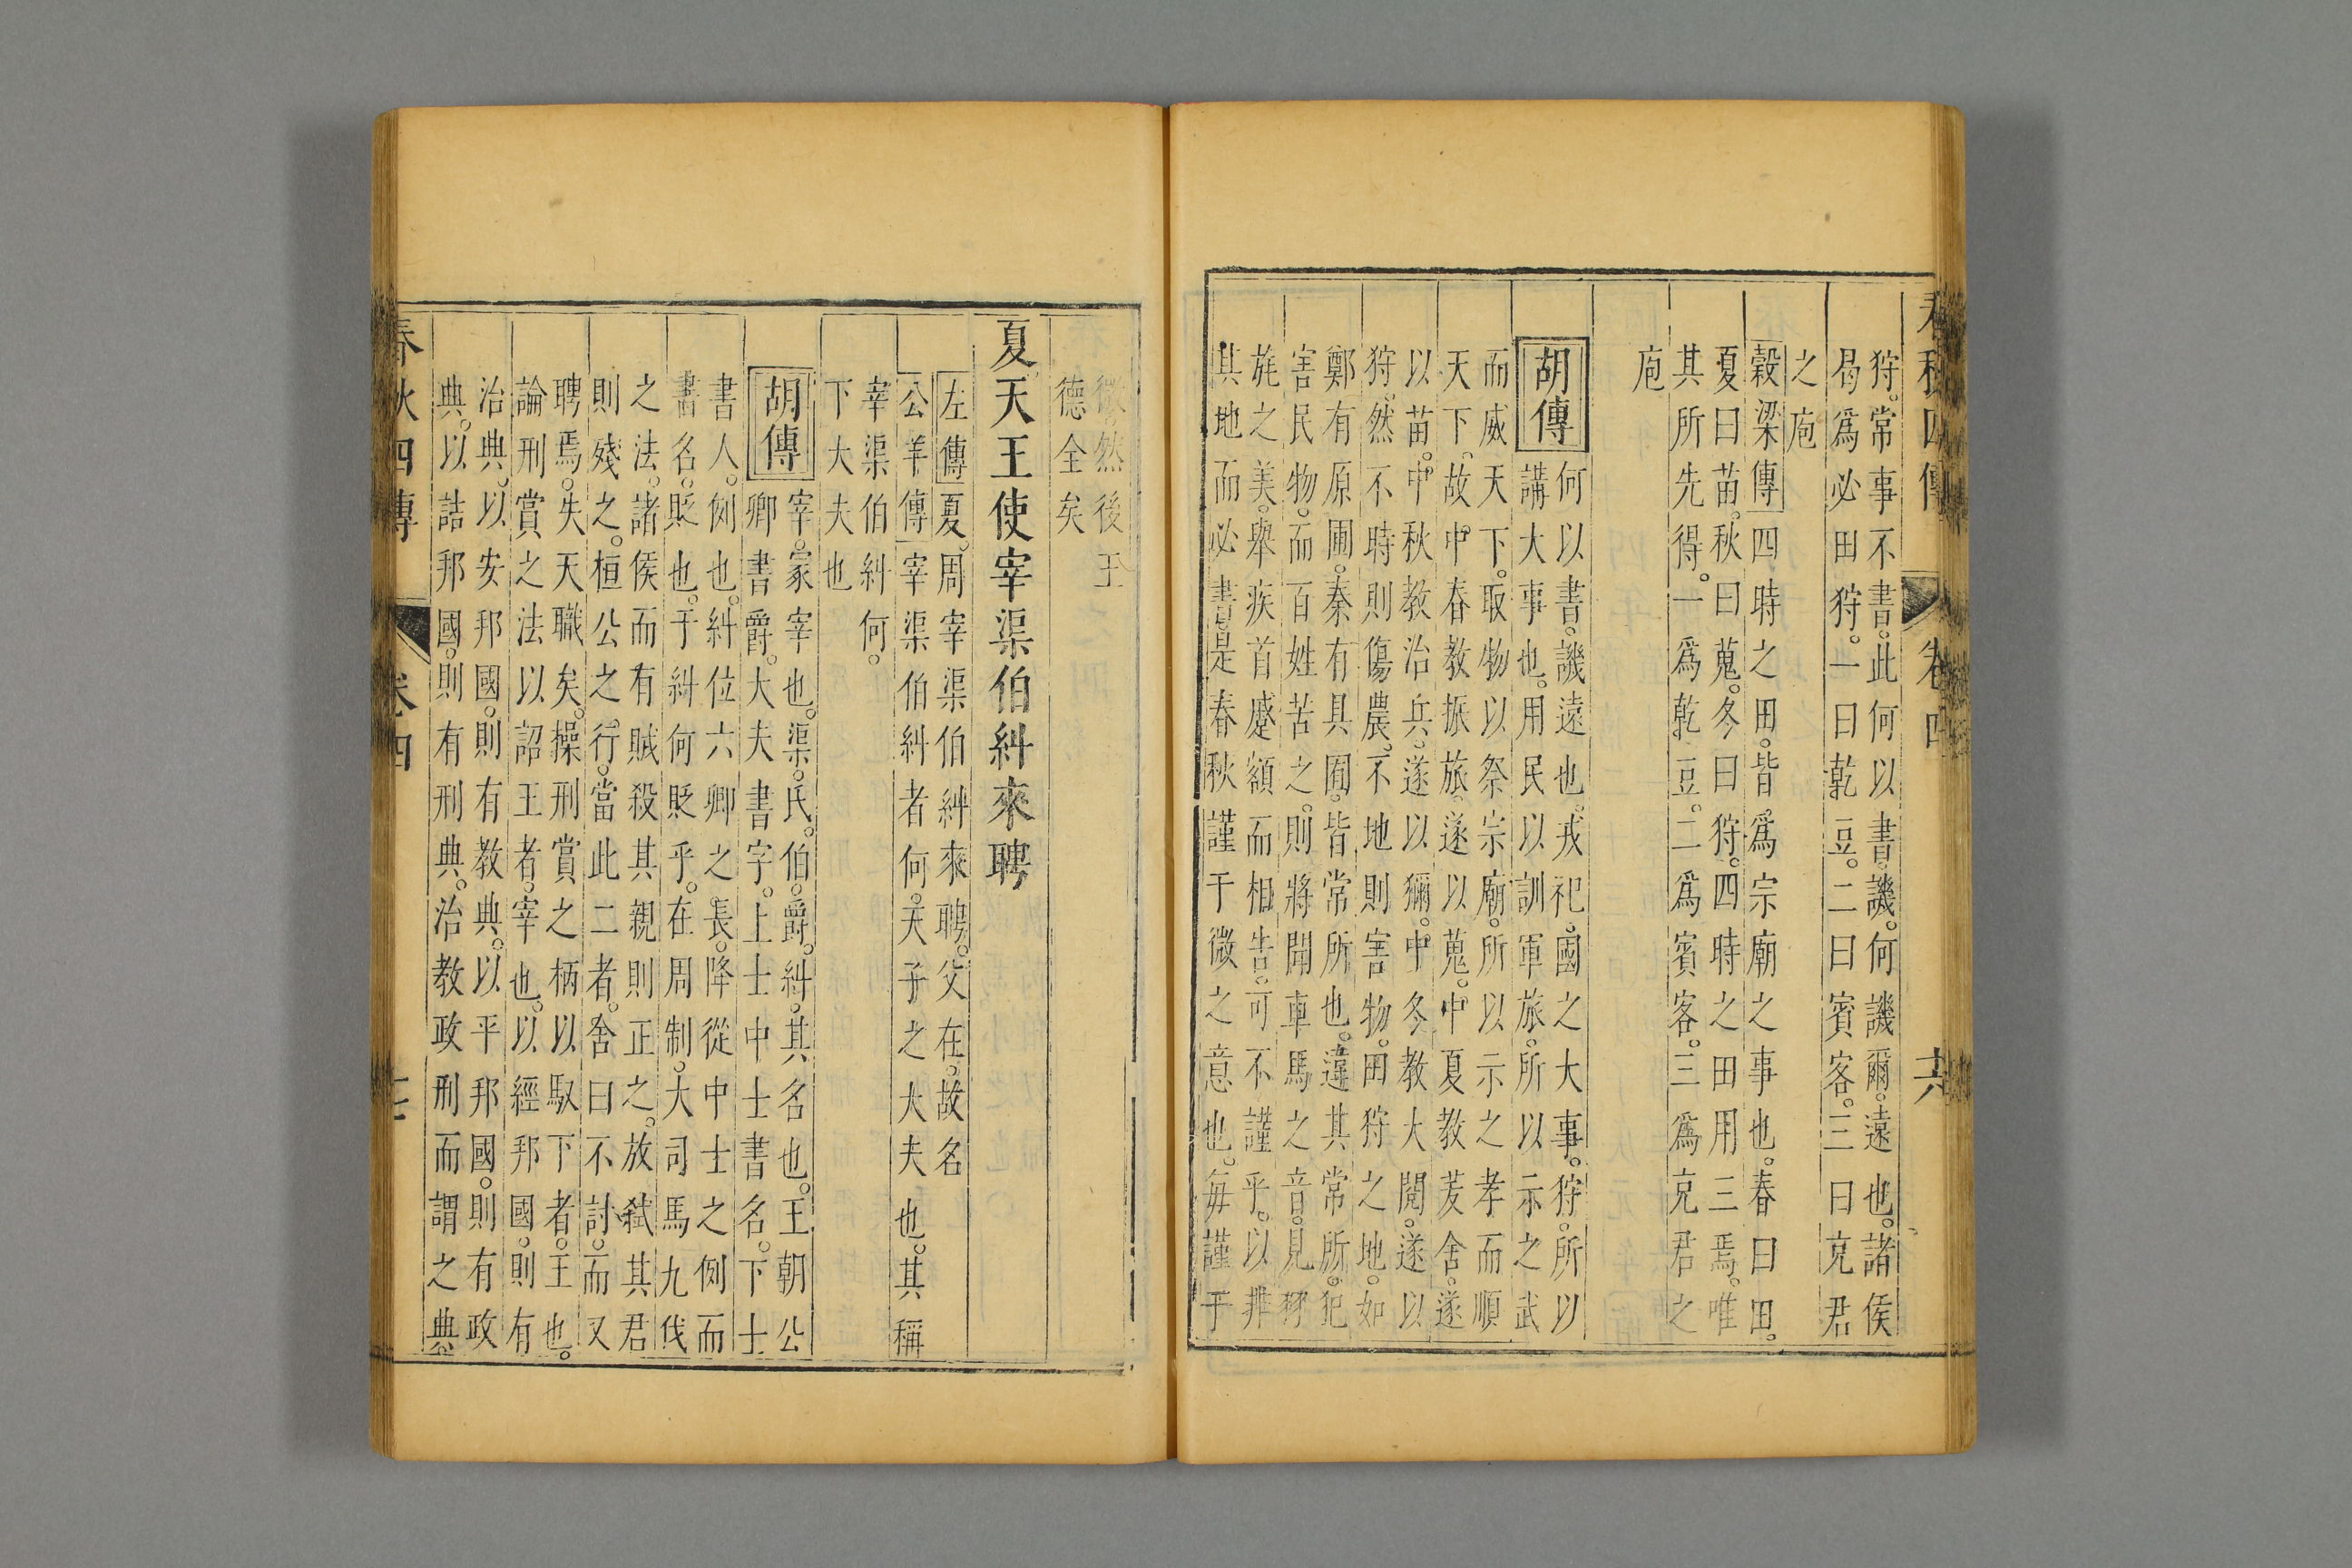 春秋四傳 卷四 十六
狩。常事不書。此何以書。譏。何譏爾。遠也。諸侯
曷爲必田狩。一曰乾豆。二曰賓客。三曰充君
之庖
穀梁傳四時之田。皆爲宗廟之事也。春曰田。
夏曰苗。秋曰蒐。冬曰狩。四時之田用三焉。唯
其所先得。一爲乾豆。二爲賓客。三爲充君之
庖
胡傳何以書。譏遠也。戎祀。國之大事。狩。所以
講大事也。用民以訓軍旅。所以示之武
而威天下。取物以祭宗廟。所以示之孝而順
天下。故中春教振旅。遂以蒐。中夏教茇舍。遂
以苗。中秋教治兵。遂以獮。中冬教大閱。遂以
狩。然不時則傷農。不地則害物。田狩之地。如
鄭有原圃。秦有具囿。皆常所也。違其常所。犯
害民物。而百姓苦之。則將聞車馬之音。見羽
旄之美。舉疾首蹙額而相告。可不謹乎。以非
其地而必書。是春秋謹于微之意也。每謹于
微。然後王
德全矣
夏天王使宰渠伯糾來聘
左傳夏。周宰渠伯糾來聘。父在。故名
公羊傳宰渠伯糾者何。天子之大夫也。其稱
宰渠伯糾何。
下大夫也
胡傳宰。冢宰也。渠。氏。伯。爵。糾。其名也。王朝公
卿書爵。大夫書字。上士中士書名。下士
書人。例也。糾位六卿之長。降從中士之例而
書名。貶也。于糾何貶乎。在周制。大司馬九伐
之法。諸侯而有賊殺其親則正之。放弒其君
則殘之。桓公之行。當此二者。舍曰不討。而又
聘焉。失天職矣。操刑賞之柄以馭下者。王也。
論刑賞之法以詔王者。宰也。以經邦國。則有
治典。以安邦國。則有教典。以平邦國。則有政
典。以詰邦國。則有刑典。治教政刑而謂之典
春秋四傳 卷四 十七